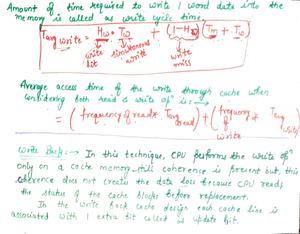 Amount of time required to write 1 word data into the
memory is called as write cycle time.
Tavg write = Hw * Tw + (1-Hw) (Tm + Tw)
write hit
simultaneous write
write miss
Average access time of the write through cache when
considering both read & write opⁿ is :→
= (frequency of read * Tavg read) + (frequency of write * Tavg write)
Write Back :→ In this technique, CPU performs the write opⁿ
only on a cache memory till coherence is present but, this
coherence does not create the data loss because CPU reads
the status of the cache blocks before replacement.
In the write back cache design each cache line is
associated with 1 extra bit called update bit.